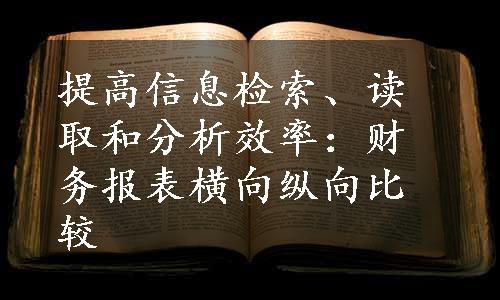 提高信息检索、读
取和分析效率：财
务报表横向纵向比
较